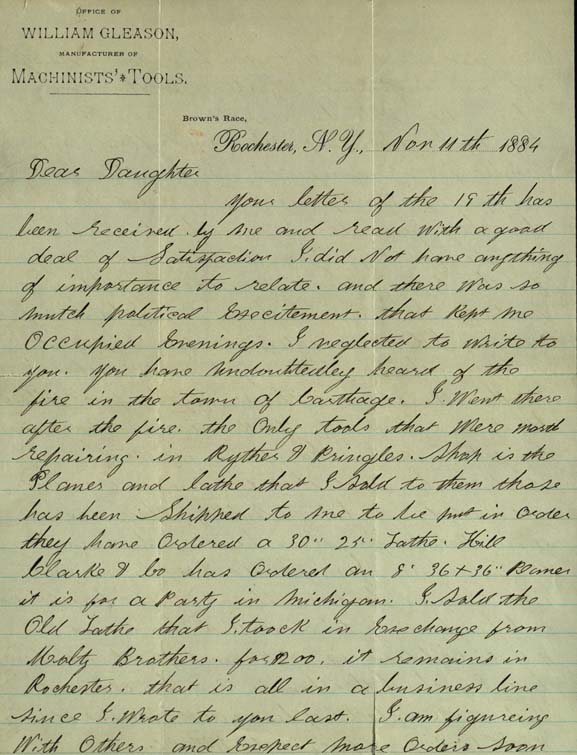 OFFICE OF
WILLIAM GLEASON,
MANUFACTURER OF
MACHINISTS' TOOLS.
Brown's Race,
Rochester, N.Y., Nov 11th 1884
Dear Daughter
Your letter of the 19th has
been received by me and read With a good
deal of Satisfaction I did Not have anything
of importance to relate. and there Was so
mutch political Execitement. that Kept me
Occupied Evenings. I neglected to Write to
you. you have Undoubtedley heard of the
fire in the town of Carthage. I Went there
after the fire. the Only tools that Were Worth
repairing. in Ryther & Pringles. Shop is the
Planer and lathe that I Sold to them those
has been Shipped to me to be put in Order
they have Ordered a 30" 25" Lathe. Hill
Clarke & Co has Ordered an 8' 36 x 36" Planer
it is for a Party in Michigan. I Sold the
Old Lathe that I toock in Exechange from
Brothers. for 200. it remains in
Rochester. that is all in a business line
Since I Wrote to you last. I am figureing
With Others and Expect more Orders Soon